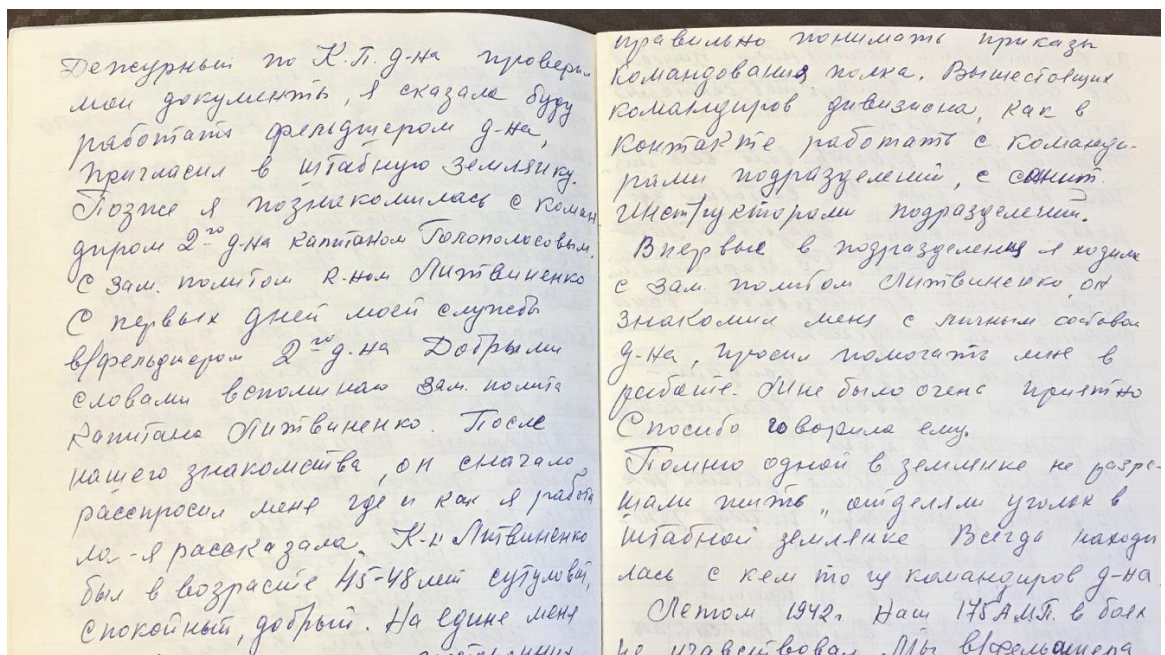 Дежурный по К.П. д-на проверил
мои документы, я сказала буду
работать фельдшером д-на,
Пригласил в штабную землянку.
Позже я познакомилась с коман
диром 2го д-на капитаном Голополосовым.
С зам. политом к-ном Литвиненко
С первых дней моей службы
в/фельдшером 2го д-на Добрыми
словами вспоминаю зам. полита
капитана Литвиненко. После
нашего знакомства, он сначало
расспросил меня где и как я работа
ла - я рассказала. К-н Литвиненко
был в возрасте 45-48 лет сутуловат,
спокойный, добрый. На едине меня
правильно понимать приказы
командования полка, вышестоящих
командиров дивизиона, как в
контакте работать с команди-
рами подразделений, с санит.
инструкторами подразделений.
Впервые в подразделения я ходила
с зам. политом Литвиненко, он
знакомил меня с личным составом
д-на, просил помогать мне в
работе. Мне было очень приятно
Спосибо говорила ему.
Помню одной в землянке не разре-
шали жить, отделяли уголок в
штабной землянке Всегда находи
лась с кем то из командиров д-на.
Летом 1942г. Наш 175 А.М.П. в боях
не учавствовал Мы в/фельдшера